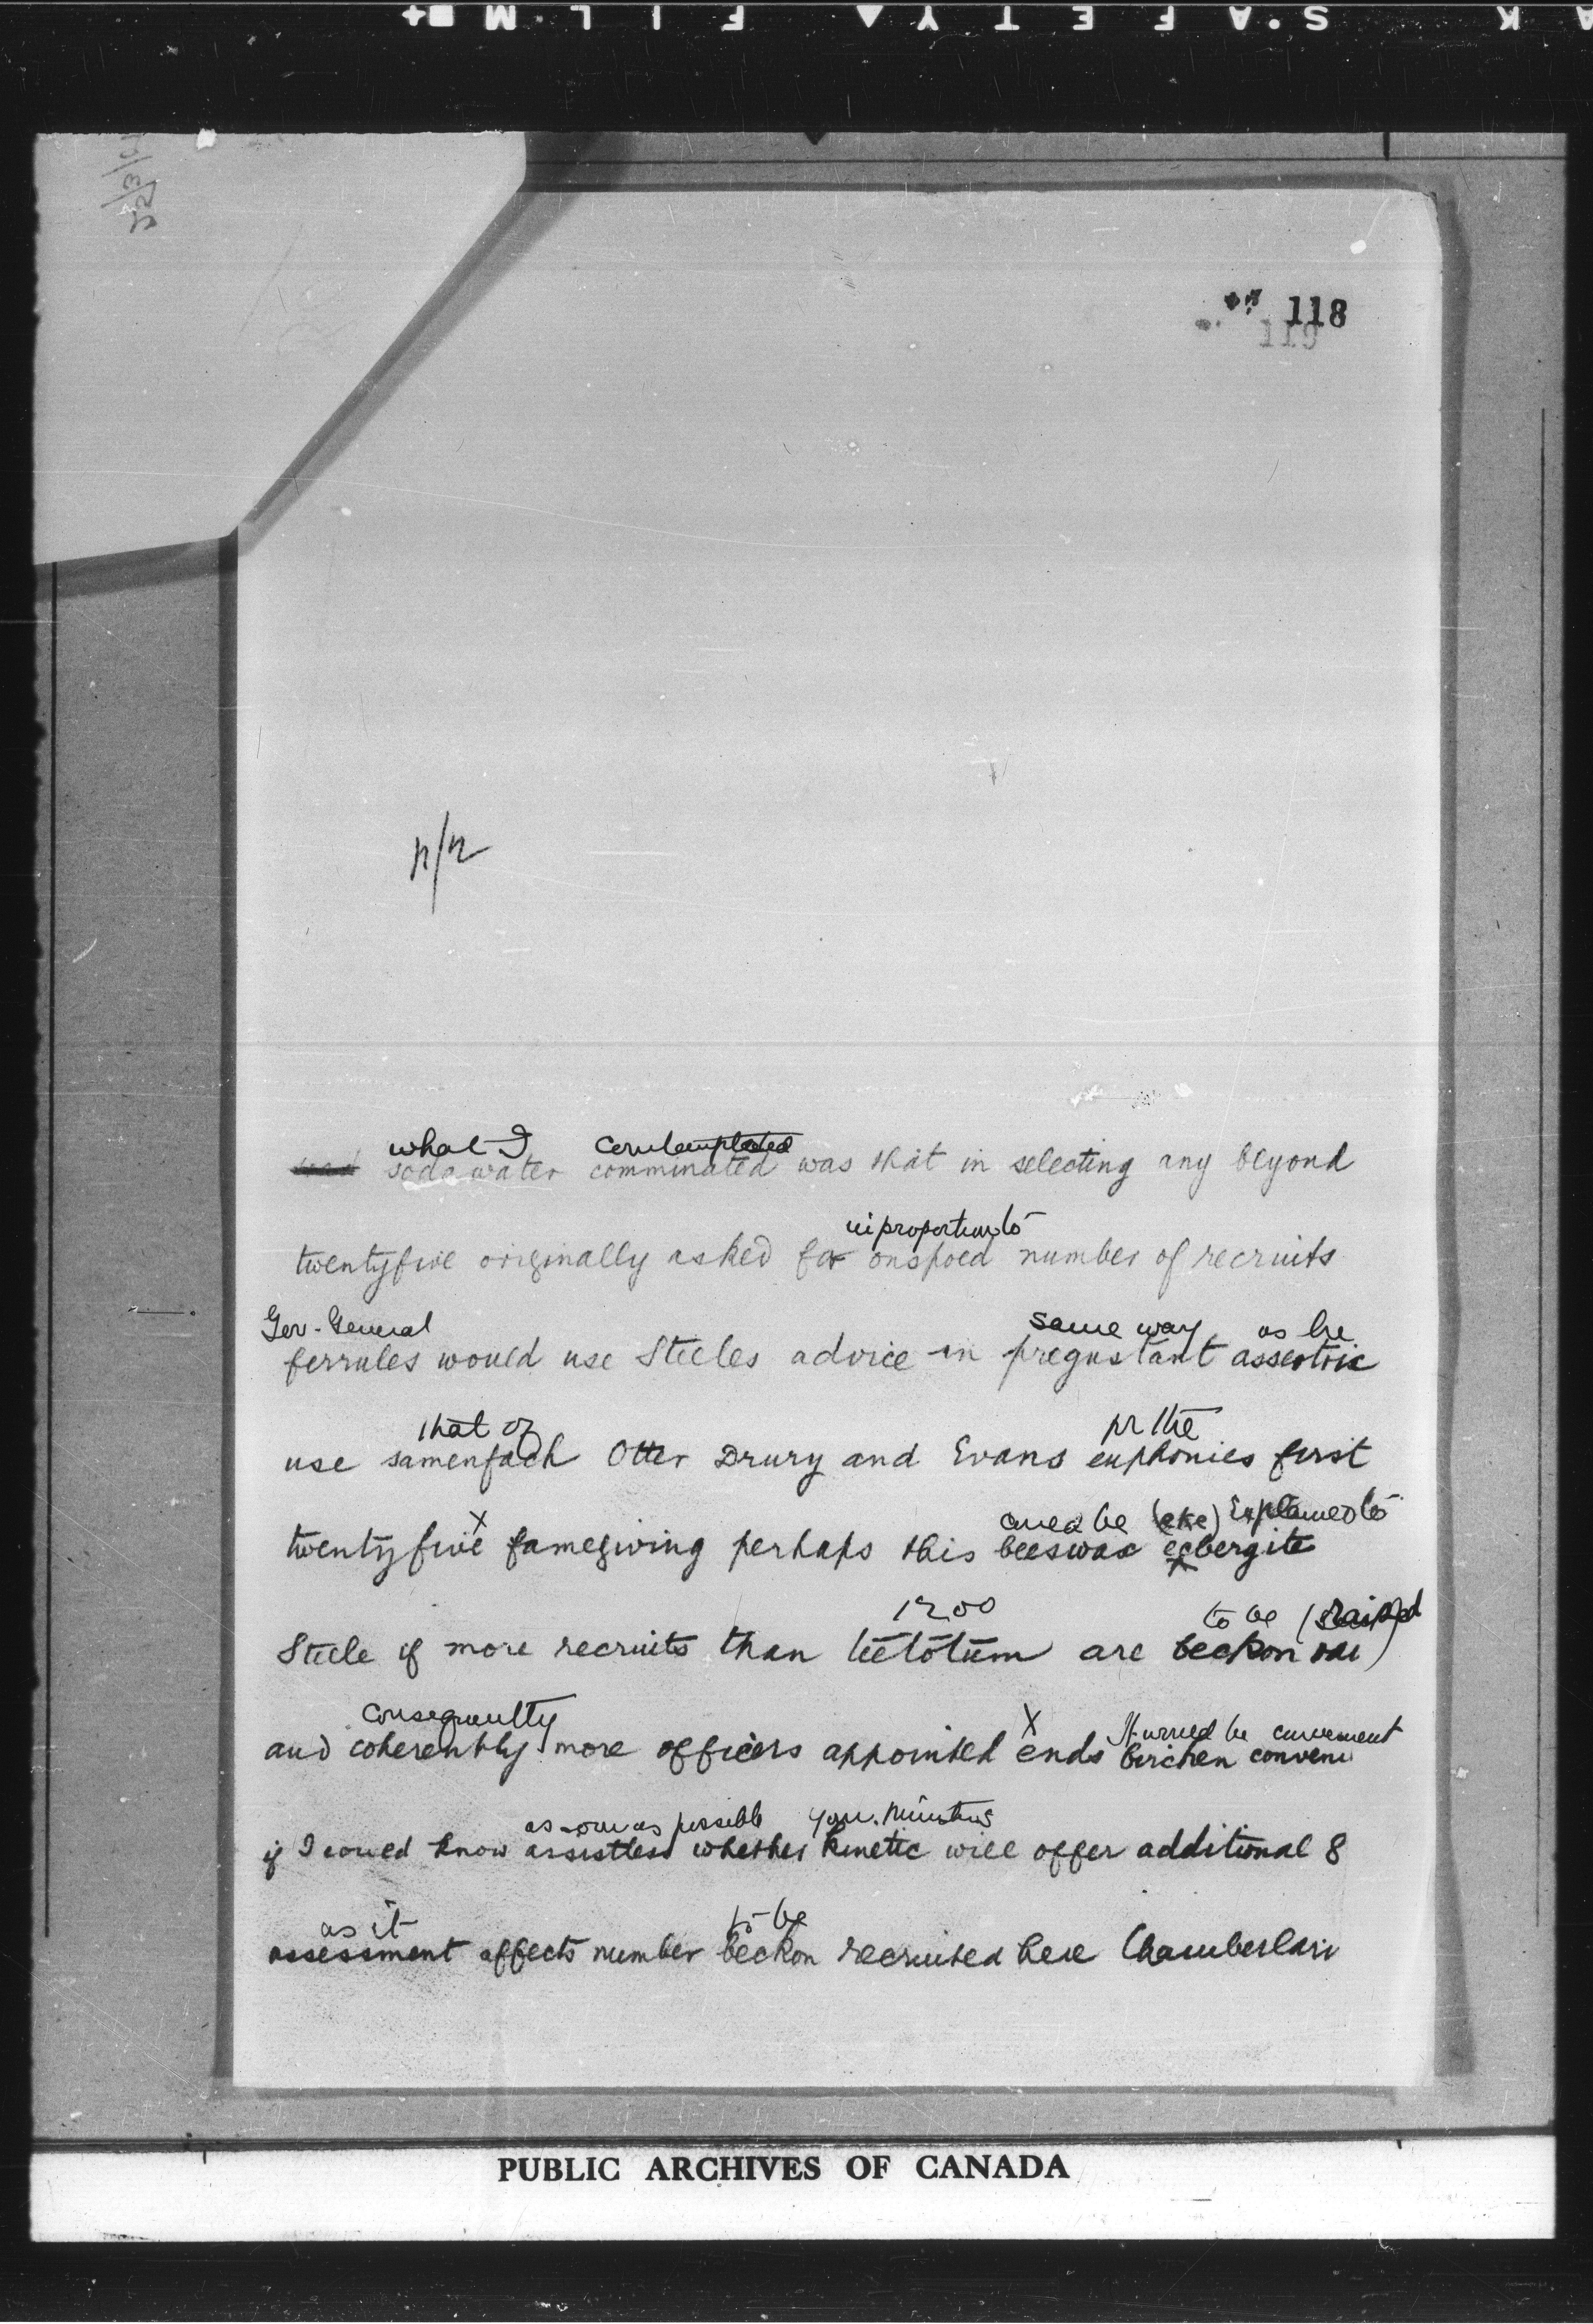 118
119
n/n
what I contemplated
soda water comminated was that in selecting any beyond
in proportion to
twentyfive originally asked for onspoed number of recruits
Gov. General same way as he
ferrules would use Steeles advice in pregustant assertric
that of for the
use samenfach Otter Drury and Evans euphonies first
x could be (eke) Explained to
twentyfive famegiving perhaps this beeswax egbergite
1200 to be (raised
Steele if more recruits than teetotum are beckon rai)
consequently x It would be convenient
and coherently more officers appointed ends birchen conveni
as soon as possible your Ministers
if I could know assistless whether kinetic will offer additional 8
as it to be
assessment affects number beckon recruited here Chamberlain
PUBLIC ARCHIVES OF CANADA